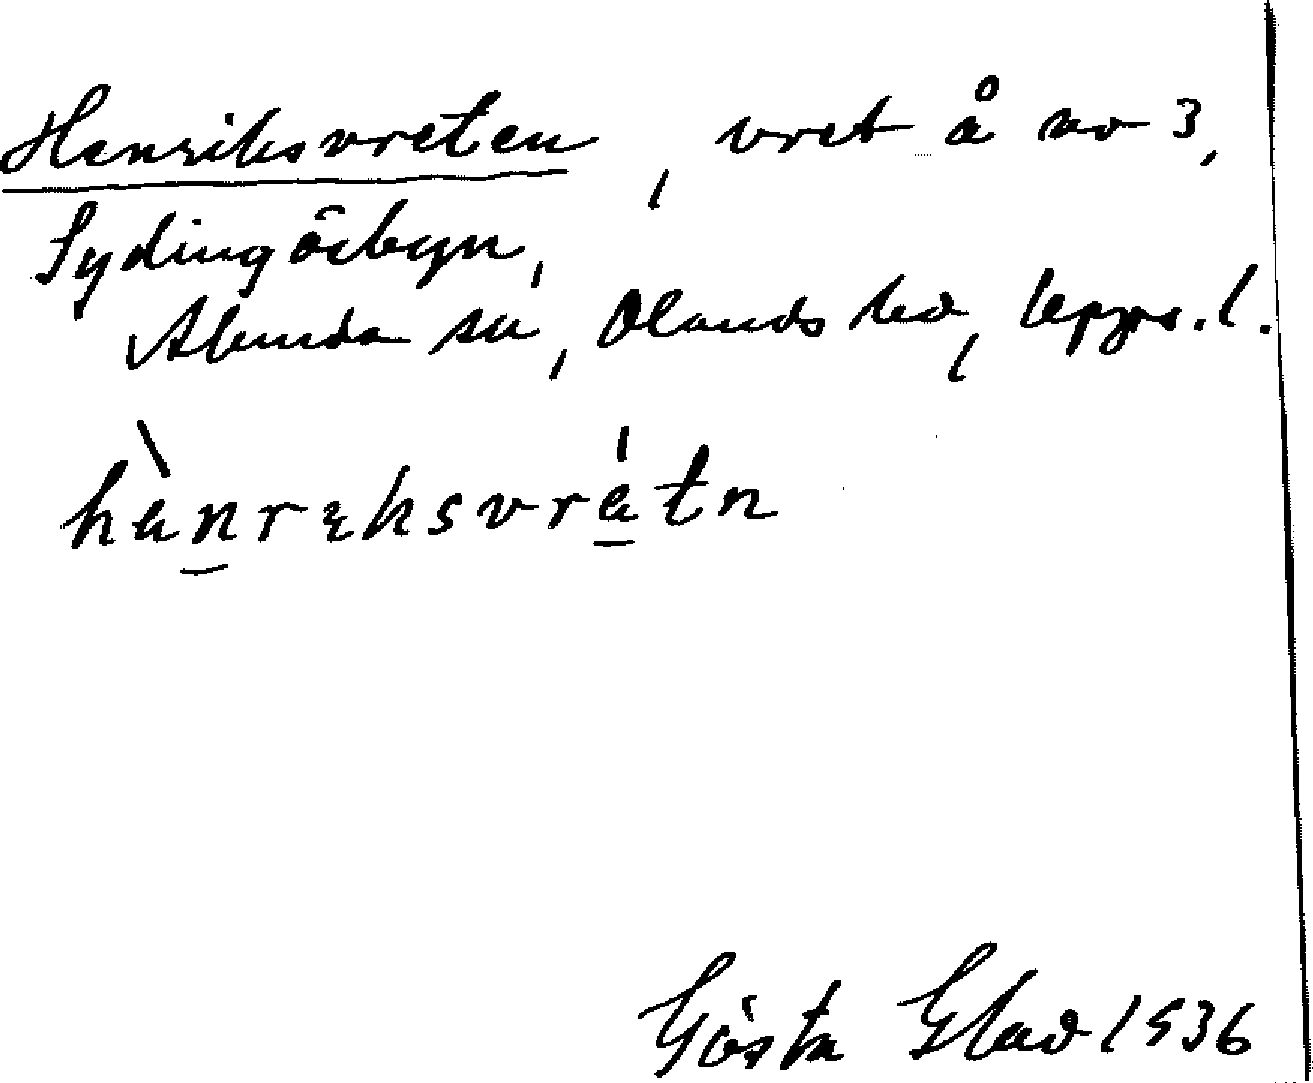 Henriksvreten, vret å no 3,
Sydingösbyn,
Alunda sn, Olands hd, Upps. l.
hànrɛksvrätn
Gösta Glad 1936